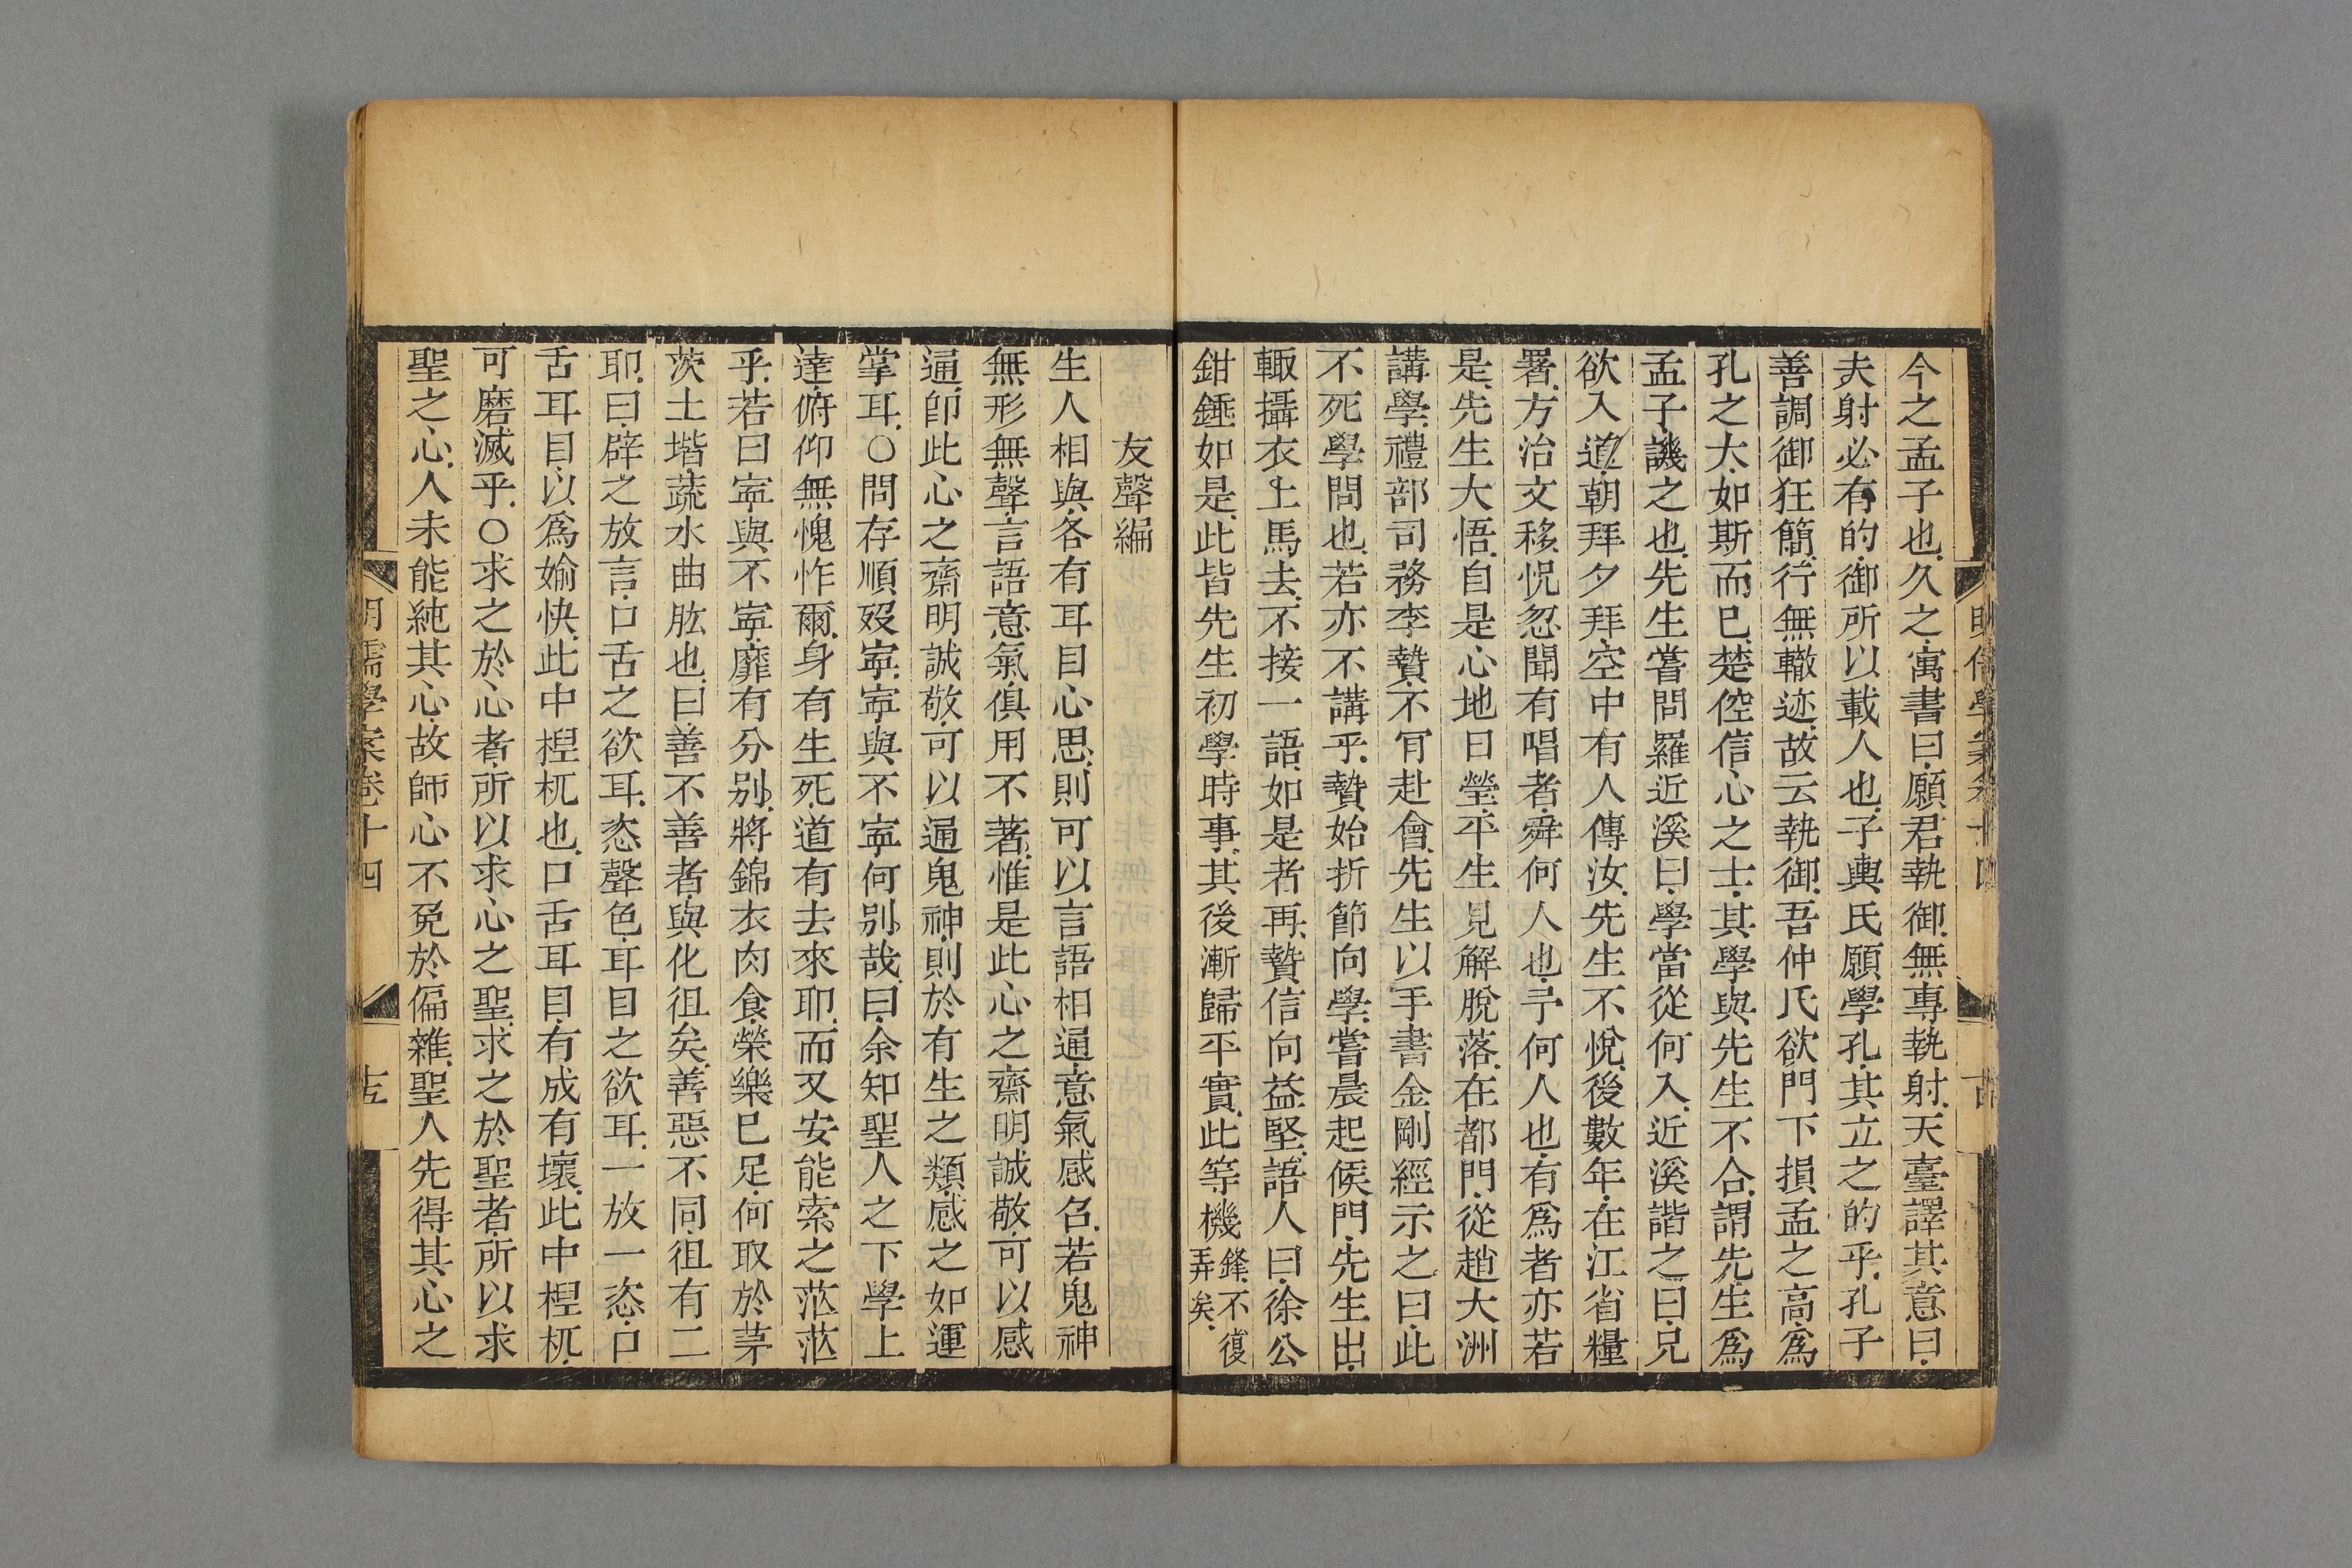 今之孟子也.久之.寓書曰.願君執御.無專執射.天臺譯其意曰.
夫射必有的.御所以載人也.子輿氏願學孔.其立之的乎.孔子
善調御狂簡.行無轍迹.故云執御.吾仲氏欲門下損孟之高.爲
孔之大.如斯而已.楚倥信心之士.其學與先生不合.謂先生爲
孟子.譏之也.先生嘗問羅近溪曰.學當從何入.近溪諧之曰.兄
欲入道.朝拜夕拜.空中有人傳汝.先生不悅.後數年.在江省糧
署.方治文移.怳忽聞有唱者.舜何人也.予何人也.有爲者亦若
是.先生大悟.自是心地日瑩.平生見解脫落.在都門.從趙大洲
講學.禮部司務李贄.不肯赴會.先生以手書金剛經示之曰.此
不死學問也.若亦不講乎.贄始折節向學.嘗晨起候門.先生出.
輒攝衣上馬去.不接一語.如是者再.贄信向益堅.語人曰.徐公
鉗錘如是.此皆先生初學時事.其後漸歸平實.此等機鋒.不復弄矣.
友聲編
生人相與.各有耳目心思.則可以言語相通.意氣感召.若鬼神
無形無聲.言語意氣.俱用不著.惟是此心之齋明誠敬.可以感
通.卽此心之齋明誠敬.可以通鬼神.則於有生之類.感之如運
掌耳.○問存順歿寧.寧與不寧何别哉.曰.余知聖人之下學上
達.俯仰無愧怍爾.身有生死.道有去來耶.而又安能索之茫茫
乎.若曰寧與不寧.靡有分别.將錦衣肉食.榮樂已足.何取於茅
茨土堦.蔬水曲肱也.曰.善不善者.與化徂矣.善惡不同.徂有二
耶.曰.辟之放言.口舌之欲耳.恣聲色.耳目之欲耳.一放一恣.口
舌耳目.以爲媮快.此中揑杌也.口舌耳目.有成有壞.此中揑杌.
可磨滅乎.○求之於心者.所以求心之聖.求之於聖者.所以求
聖之心.人未能純其心.故師心不免於偏雜.聖人先得其心之
明儒學案卷十四